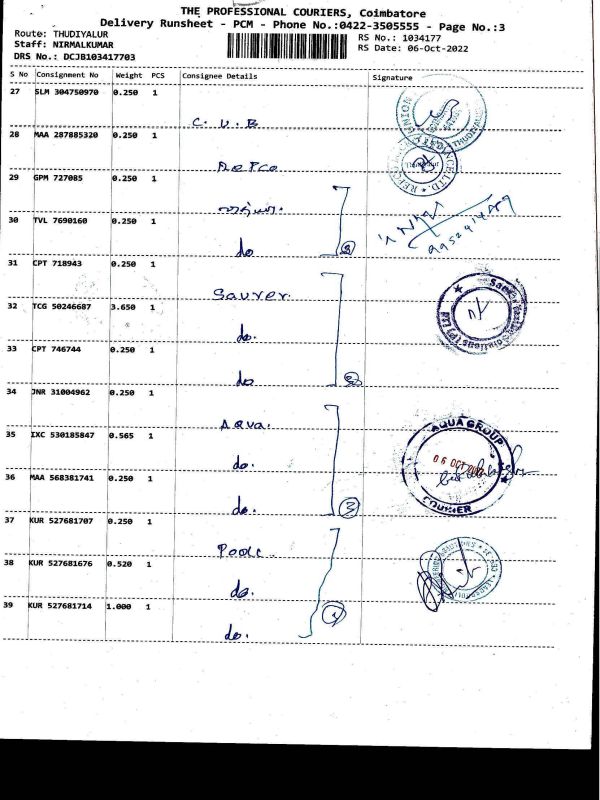 THE PROFESSIONAL COURIERS, Coimbatore
Delivery Runsheet - PCM - Phone No.:0422-3505555 - Page No.:3
Route: THUDIYALUR
Staff: NIRMALKUMAR
DRS No.: DCJB103417703
RS No.: 1034177
RS Date: 06-Oct-2022
S No Consignment No Weight PCS Consignee Details Signature
27 SLM 304750970 0.250 1
C. U. B
28 MAA 287885320 0.250 1
Repco
29 GPM 727085 0.250 1
30 TVL 7690160 0.250 1
do 2
9952414589
31 CPT 718943 0.250 1
Saurer.
32 TCG 50246687 3.650 1
do.
33 CPT 746744 0.250 1
do 3
34 JNR 31004962 0.250 1
Aqua.
35 IXC 530185847 0.565 1
do.
AQUA GROUP
06 OCT 2022
COURIER
36 MAA 568381741 0.250 1
do. 3
37 KUR 527681707 0.250 1
38 KUR 527681676 0.520 1
do.
39 KUR 527681714 1.000 1
do.